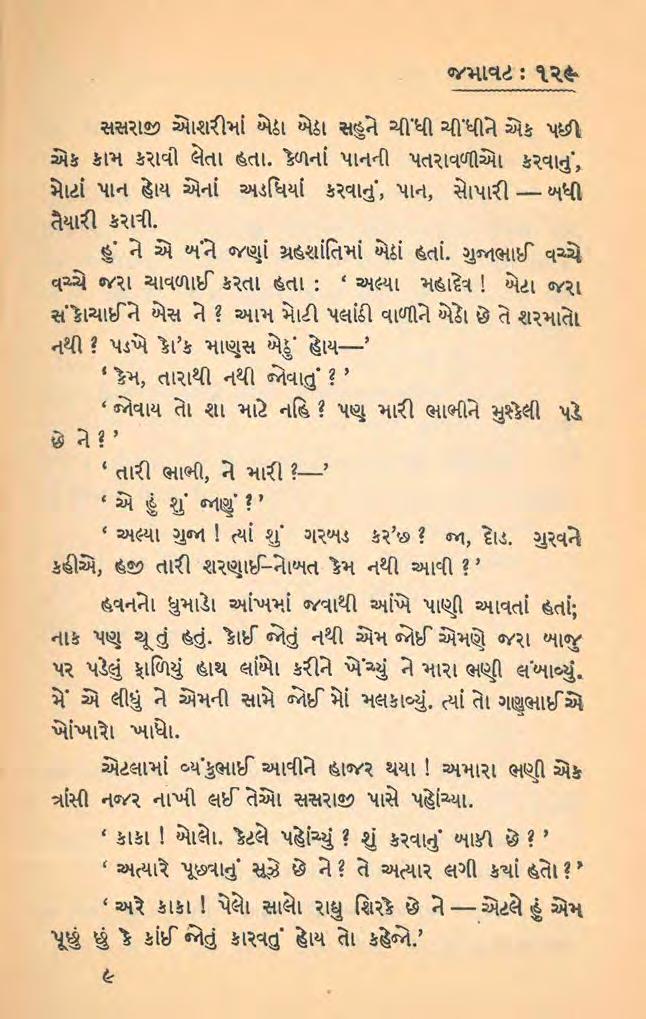 જમાવટ : ૧૨૯
સસરાજી ઓશરીમાં બેઠા બેઠા સહુને ચીંધી ચીંધીને એક પછી
એક કામ કરાવી લેતા હતા. કેળનાં પાનની પતરાવળીઓ કરવાનું,
મોટાં પાન હોય એનાં અડધિયાં કરવાનું, પાન, સોપારી — બધી
તૈયારી કરાવી.
હું ને એ બંને જણાં ગ્રહશાંતિમાં બેઠાં હતાં. ગુજાભાઈ વચ્ચે
વચ્ચે જરા ચાવળાઈ કરતા હતા : ‘ અલ્યા મહાદેવ ! બેટા જરા
સંકોચાઈને બેસ ને ? આમ મોટી પલાંઠી વાળીને બેઠો છે તે શરમાતો
નથી ? પડખે કો’ક માણસ બેઠું હોય—’
‘ કેમ, તારાથી નથી જોવાતું ? ’
‘ જોવાય તો શા માટે નહિ ? પણ મારી ભાભીને મુશ્કેલી પડે
છે ને ? ’
‘ તારી ભાભી, ને મારી ?—’
‘ એ હું શું જાણું ? ’
‘ અલ્યા ગુજા ! ત્યાં શું ગરબડ કર’છ ? જા, દોડ. ગુરવને
કહીએ, હજી તારી શરણાઈ–નોબત કેમ નથી આવી ? ’
હવનનો ધુમાડો આંખમાં જવાથી આંખે પાણી આવતાં હતાં;
નાક પણ ચૂતું હતું. કોઈ જોતું નથી એમ જોઈ એમણે જરા બાજુ
પર પડેલું ફાળિયું હાથ લાંબો કરીને ખેંચ્યું ને મારા ભણી લંબાવ્યું.
મેં એ લીધું ને એમની સામે જોઈ મોં મલકાવ્યું. ત્યાં તો ગણુભાઈએ
ખોંખારો ખાધો.
એટલામાં વ્યંકુભાઈ આવીને હાજર થયા ! અમારા ભણી એક
ત્રાંસી નજર નાખી લઈ તેઓ સસરાજી પાસે પહોંચ્યા.
‘ કાકા ! બોલો. કેટલે પહોંચ્યું ? શું કરવાનું બાકી છે ? ’
‘ અત્યારે પૂછવાનું સૂઝે છે ને ? તે અત્યાર લગી ક્યાં હતો ? ’
‘ અરે કાકા ! પેલો સાલો રાઘુ શિરકે છે ને — એટલે હું એમ
પૂછું છું કે કાંઈ જોતું કારવતું હોય તો કહેજો.’
૯